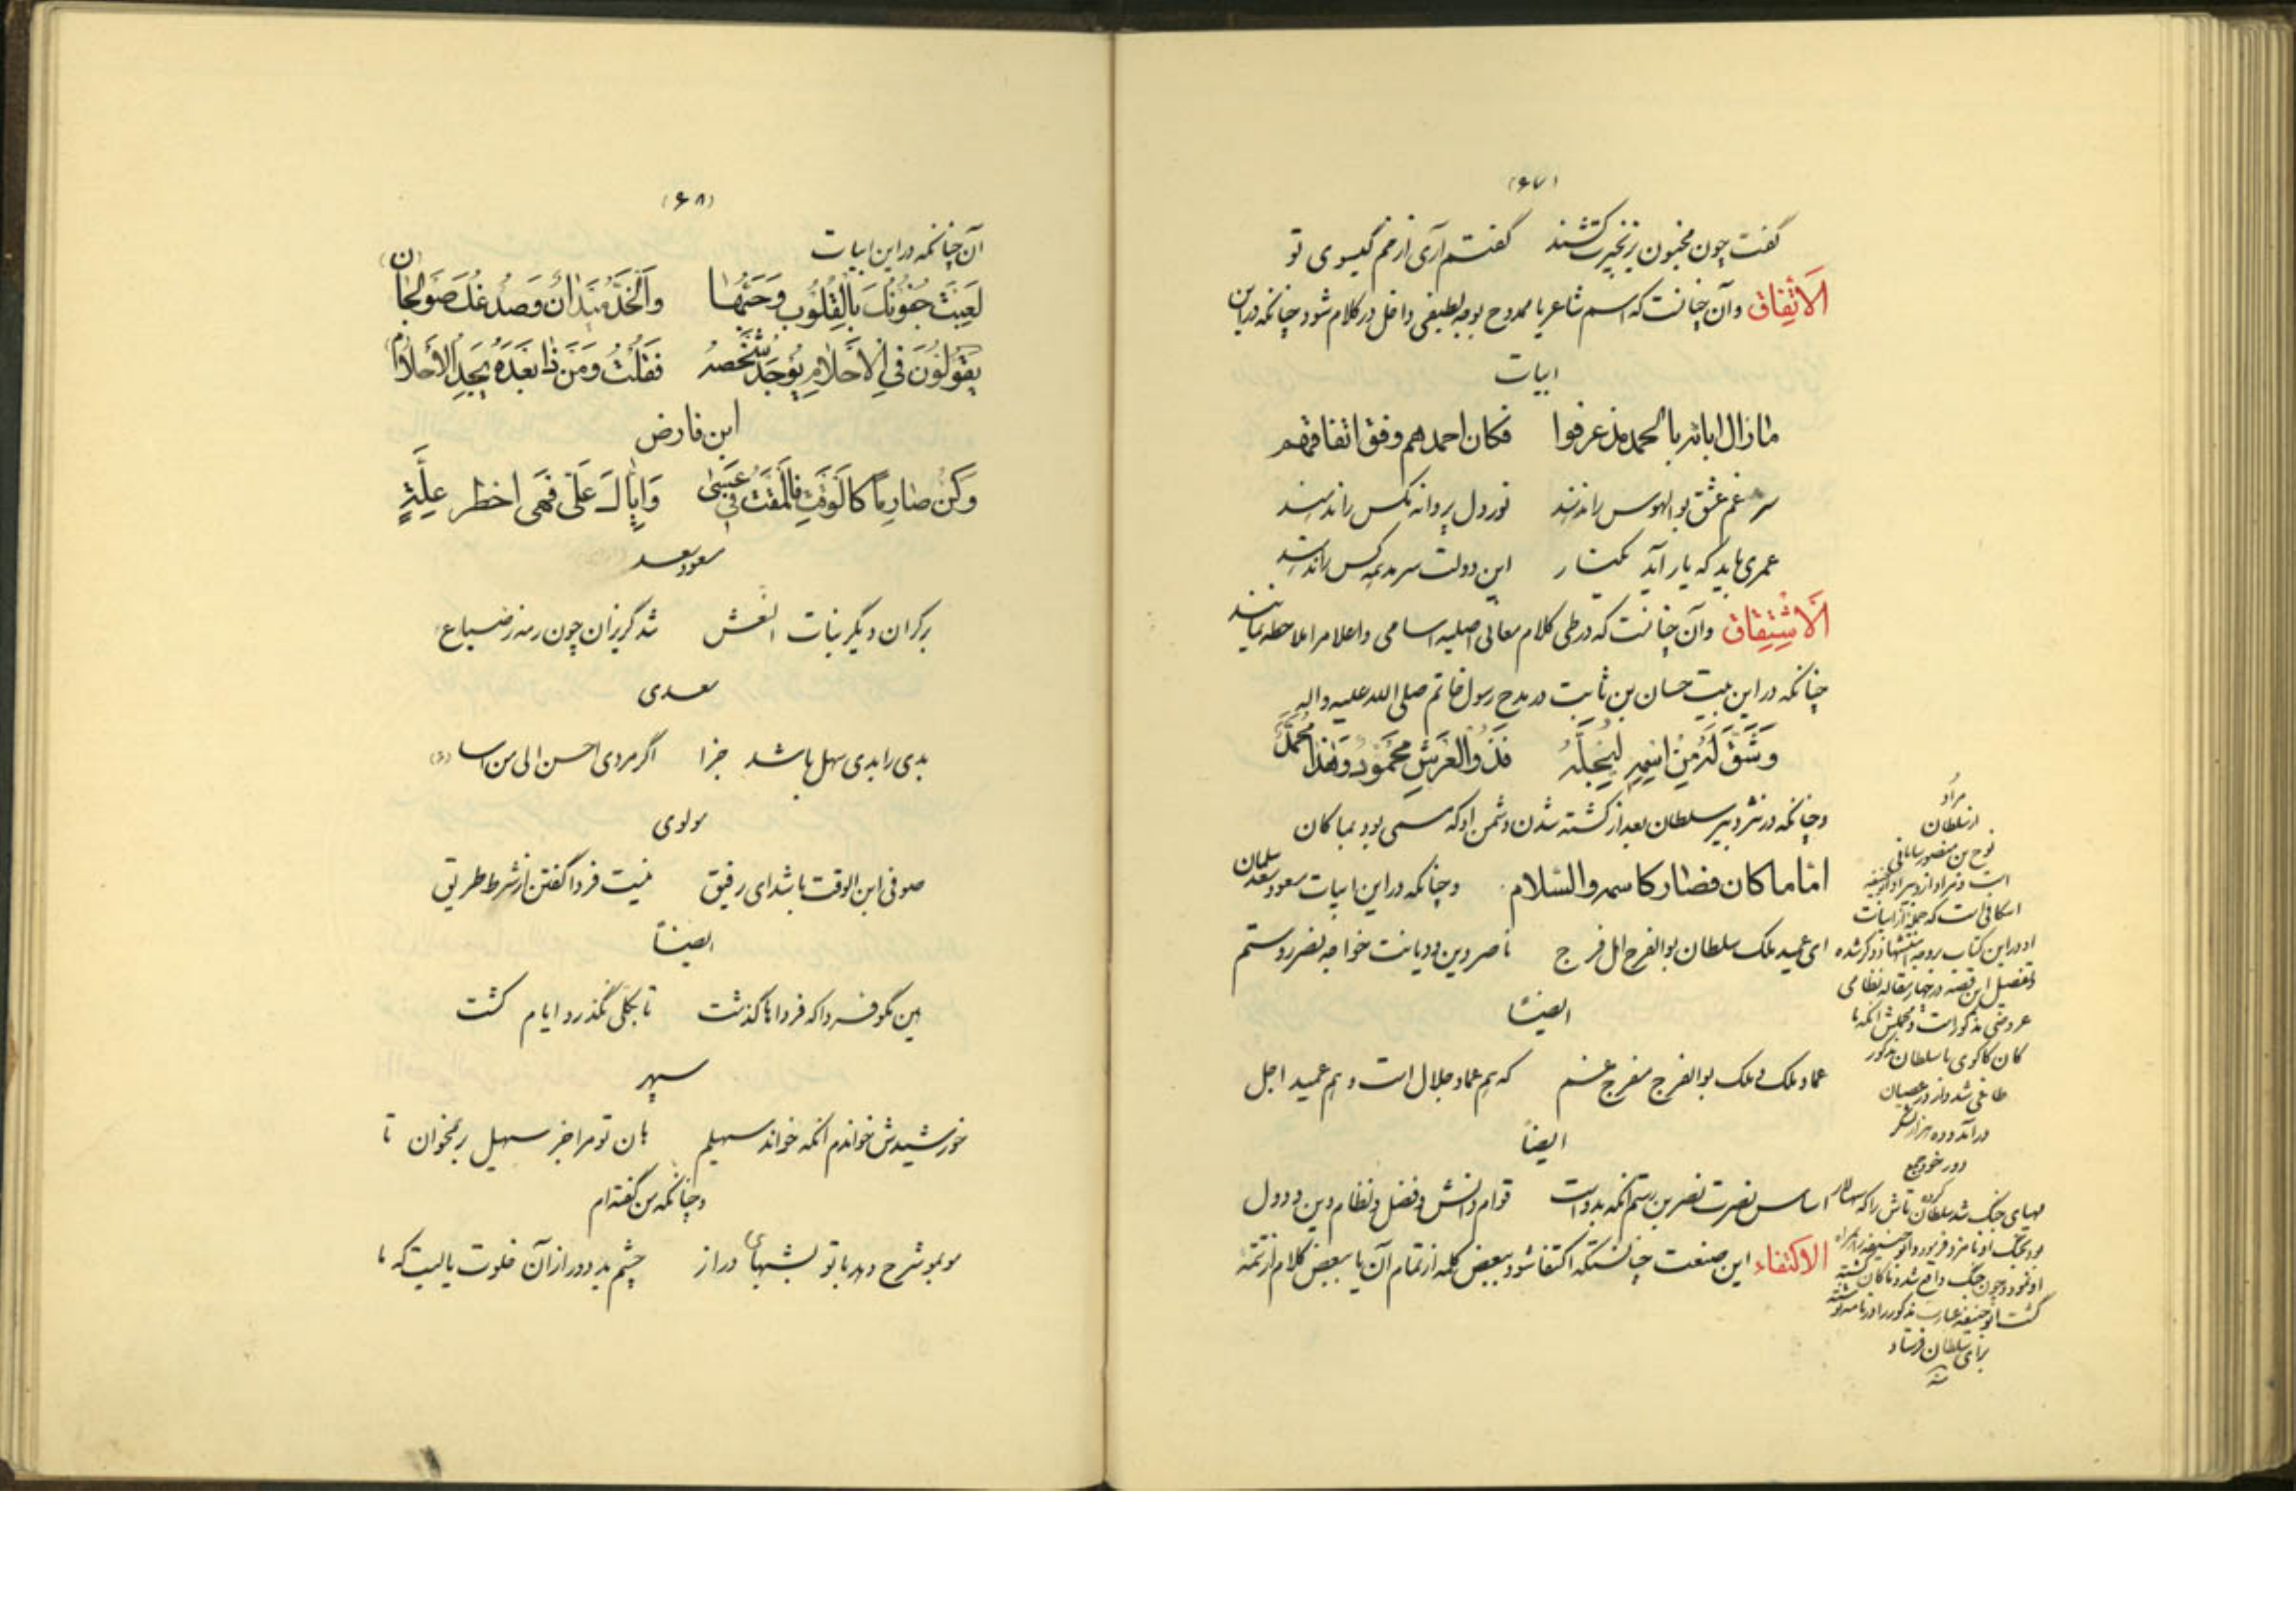 (۶۷)
گفت چون مجنون بزنجیرت کشند گفتم آری از خم گیسوی تو
الاتفاق وآن چنانست که اسم شاعر یا ممدوح بوجه لطیفی داخل در کلام شود چنانکه در این
ابیات
مازال اباؤه بالحمد مذ عرفوا فکان احمدهم وفق اتفاقهم
سرمد غم عشق بوالهوس را ندهند نور دل پروانه مگس را ندهند
عمری باید که یار آید بکنار این دولت سرمد همه کس را ندهند
الاشتقاق وآن چنانست که در طی کلام معانی اصلیه اسامی واعلام را ملاحظه نمایند
چنانکه در این بیت حسان بن ثابت در مدح رسول خاتم صلی الله علیه واله
وَشَقَّ لَهُ مِنْ اسْمِهِ لِیُجِلَّهُ فَذُو الْعَرْشِ مَحْمُودٌ وَهٰذَا مُحَمَّدٌ
وچنانکه در نثر دبیر سلطان بعد از کشته شدن دشمن او که مسمی بود بماکان
اما ماکان فصار کاسمه والسلام وچنانکه در این ابیات مسعود سعد سلمان
ای عمید ملک سلطان بوالفرج اهل فرج ناصر دین ودیانت خواجه نصر رستم
ایضاً
عماد ملک وملک بوالفرج مفرج غم که هم عماد جلال است وهم عمید اجل
ایضاً
اساس نصرت نصر بن رستم آنکه بدوست قوام دانش وفضل ونظام دین ودول
الاکتفاء این صنعت چنانستکه اکتفا شود ببعض کلمه از تمام آن یا ببعض کلام از تتمه
مراد
از سلطان
نوح بن منصور سامانی
است ومراد از دبیر او
اسکافی است که
او در این کتاب
وتفصیل این قصه در چهار مقاله نظامی
عروضی مذکور است ومجملش آنکه ما
کان کاکوی با سلطان مذکور
طاغی شد واز در عصیان
در آمد وده هزار لشکر
دور خود جمع
کرده
مهیای جنگ شد سلطان تاش را که سپهسالار
بود بجنگ او نامزد فرمود
او نمود وچون جنگ واقع شد وماکان کشته
گشت عبارت مذکور را در نامه نوشته
برای سلطان فرستاد
(۶۸)
آن چنانکه در این ابیات
لَعِبَتْ جُفُونُكَ بِالْقُلُوبِ وَحَبِّهَا وَالْخَدُّ مَیْدَانٌ وَصُدْغُكَ صَوْلَجَا(ن)
یَقُولُونَ فِی الْاَحْلَامِ یُوجَدُ شَخْصُهُ فَقُلْتُ وَمَنْ ذَا بَعْدَهُ یَجِدُ الْاَحْلَا(م)
ابن فارض
وَکُنْ صَارِماً کَالْوَقْتِ فَالْمَقْتُ فِی عَسٰی وَاِیَّاكَ عَلَّ فَهِیَ اخطر عِلَّةٍ
مسعود سعد
برکران دیگر بنات النعش شد گریزان چون رمه ز ضباع
سعدی
بدی را بدی سهل باشد جزا اگر مردی احسن الی من اسا (ء)
مولوی
صوفی ابن الوقت باشد ای رفیق نیست فردا گفتن از شرط طریق
ایضاً
هین مگو فردا که فرداها گذشت تا بکلی نگذرد ایام کشت
سپهر
خورشیدش خواندم آنکه خواند سهیلم هان تو مرا جز سهیل بر بمخوان تا
وچنانکه من گفته‌ام
موبمو شرح دهد با تو بشبهای دراز چشم بد دور از آن خلوت یا لیت که ما